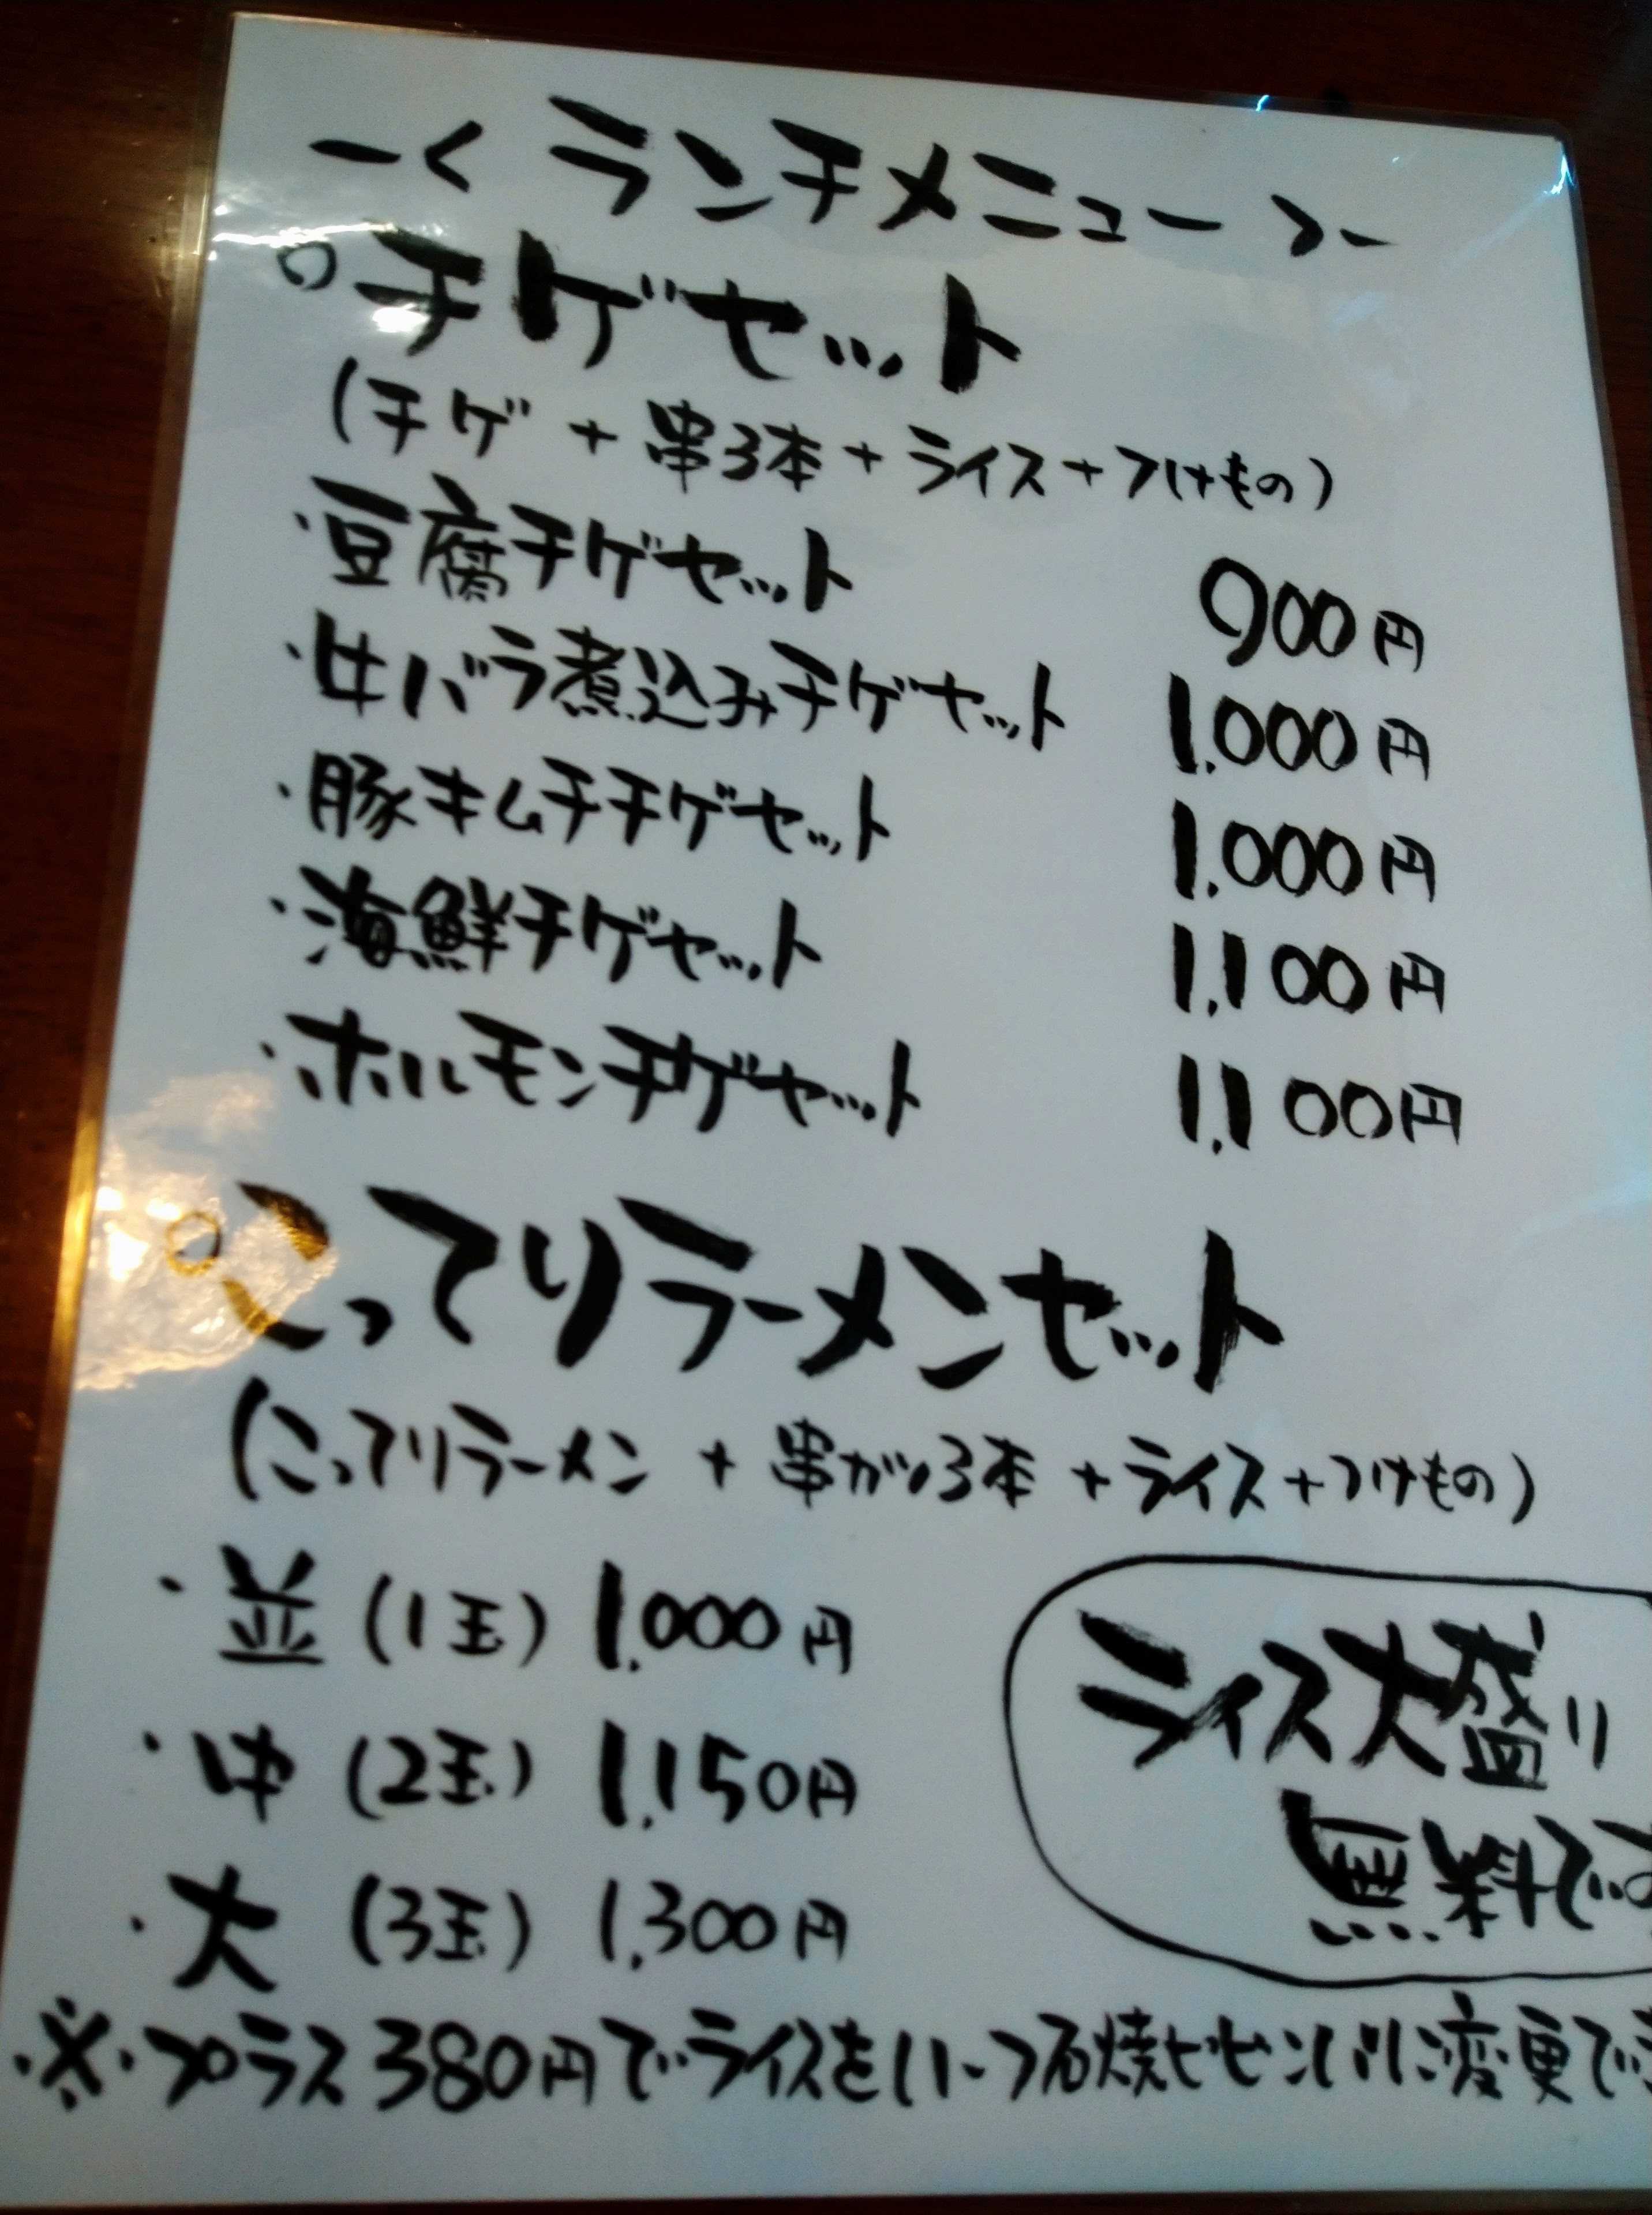 ー＜ランチメニュー＞ー
○チゲセット
(チゲ + 串3本 + ライス + つけもの)
・豆腐チゲセット 900円
・牛バラ煮込みチゲセット 1,000円
・豚キムチチゲセット 1,000円
・海鮮チゲセット 1,100円
・ホルモンチゲセット 1,100円
○こってりラーメンセット
(こってりラーメン + 串かつ3本 + ライス + つけもの)
・並 (1玉) 1,000円
・中 (2玉) 1,150円
・大 (3玉) 1,300円
ライス大盛り
無料です
※プラス380円でライスをハーフ石焼ビビンバに変更でき